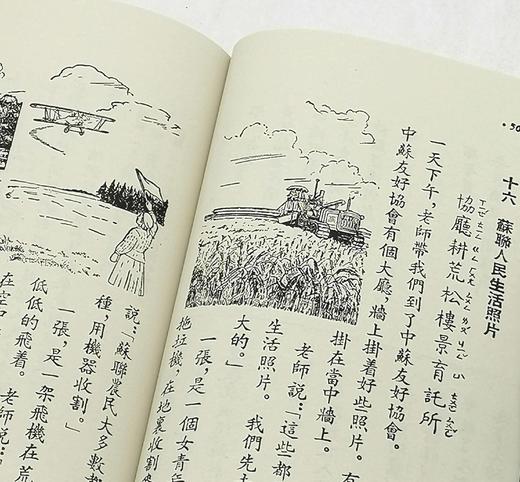 十六 蘇聯人民生活照片
協廳耕荒松樓景育託所
一天下午，老師帶我們到了中蘇友好協會。
中蘇友好協會有個大廳，牆上掛着好些照片。有
掛在當中牆上。
老師說：「這些都
生活照片。 我們先
大的。」
一張，是一個女青
拖拉機，在地裏收割
說：「蘇聯農民大多數
種，用機器收割。」
一張，是一架飛機在荒
低低的飛着。 老師說：
在空